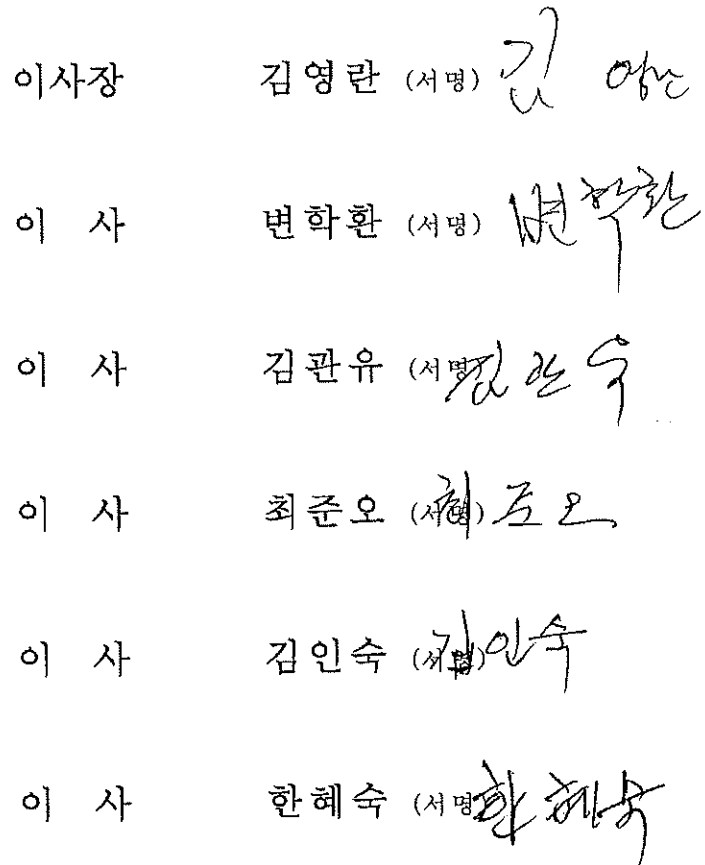 이사장 김영란 (서명) 김 영란
이 사 변학환 (서명) 변학환
이 사 김관유 (서명) 김관유
이 사 최준오 (서명) 최준오
이 사 김인숙 (서명) 김인숙
이 사 한혜숙 (서명) 한혜숙